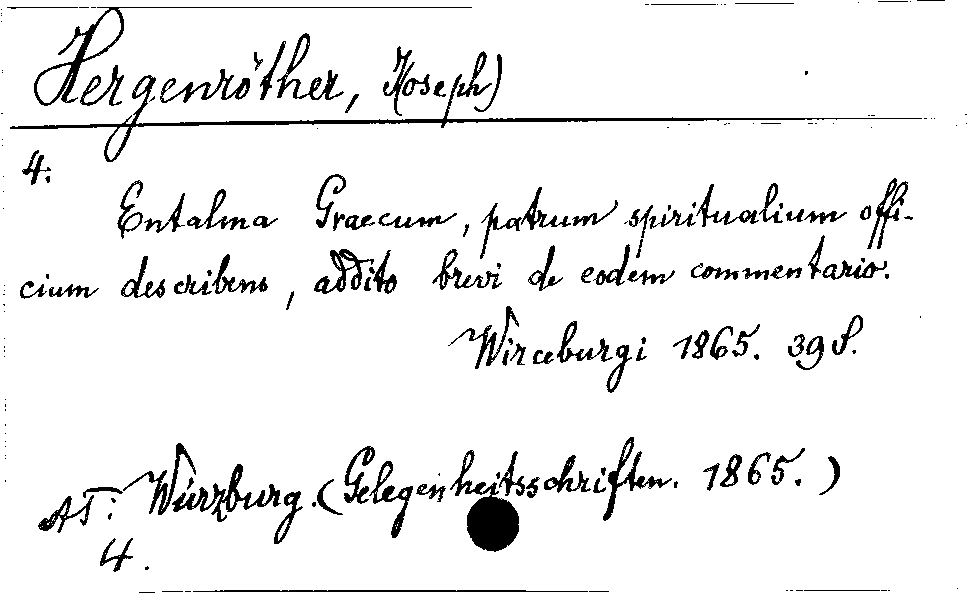 Hergenröther, Joseph)
4:
Entalma Graecum, patrum spiritualium offi-
cium describens, addito brevi de eodem commentario.
Wirceburgi 1865. 39 S.
AT: Würzburg. (Gelegenheitsschriften. 1865.)
4.